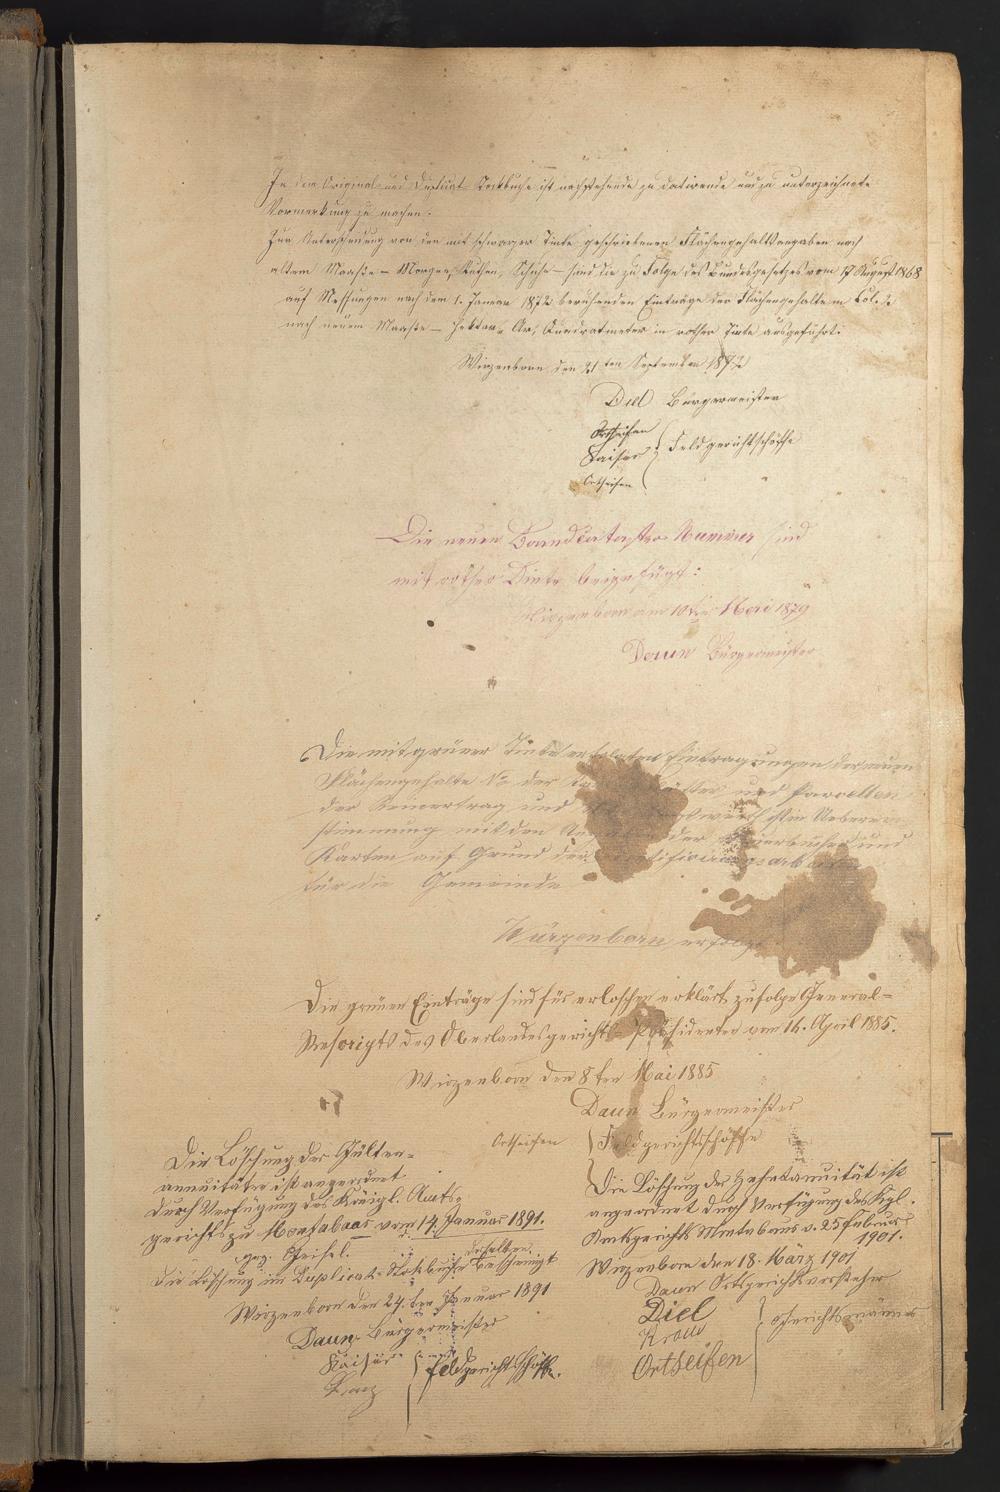 In dem Original und Duplicat Stockbuche ist nachstehende zu datirende und zu unterzeichnete
Vormerkung zu machen.
Zur Unterscheidung von den mit schwarzer Tinte geschriebenen Flächengehaltsangaben nach
altem Maaße – Morgen, Ruthen, Schuhe – sind die zu Folge des Bundesgesetzes vom 17 August 1868
auf Messungen nach dem 1. Januar 1872 beruhenden Einträge der Flächengehalte in Col. 2
nach neuem Maaße – Hektar, Ar, Quadratmeter in rother Tinte ausgeführt.
Wirzenborn den 21ten September 1872
Diel Bürgermeister
Ortseifen
Kaiser } Feldgerichtschöffe
Ortseifen
Die neuen Brandcataster Nummer sind
mit rother Dinte beigefügt:
Wirzenborn am 10ten Mai 1879
Daun Bürgermeister
Die mit grüner Tinte erfolgten Eintragungen der neuen
Flächengehalte No der und Parcellen
der Reinertrag und in Ueberein
stimmung mit den der und
Karten auf Grund der
für die Gemeinde
Würzenborn erfolgt
Die grünen Einträge sind für erloschen erklärt zufolge General-
Rescripts des Oberlandesgerichts-Präsidenten vom 16. April 1885.
Wirzenborn den 8ten Mai 1885
Daun Bürgermeister
Ortseifen } Feldgerichtsschöffe
Die Löschung der Gülten-
annuitäten ist angeordnet
durch Verfügung des Königl. Amts-
gerichts zu Montabaur vom 14 Januar 1891.
gez.
Die Löschung im Duplicat-Stockbuche desselben bescheinigt
Wirzenborn den 24.ten Januar 1891
Daun Bürgermeister
Kaiser } Feldgerichtsschöffe.
Die Löschung der Zehntannuität ist
angeordnet durch Verfügung des Kgl.
Amtsgerichts Montabaur v. 25 Februar
1901.
Wirzenborn den 18. März 1901
Daun Ortsgerichtsvorsteher
Diel
} Gerichtsmänner
Ortseifen